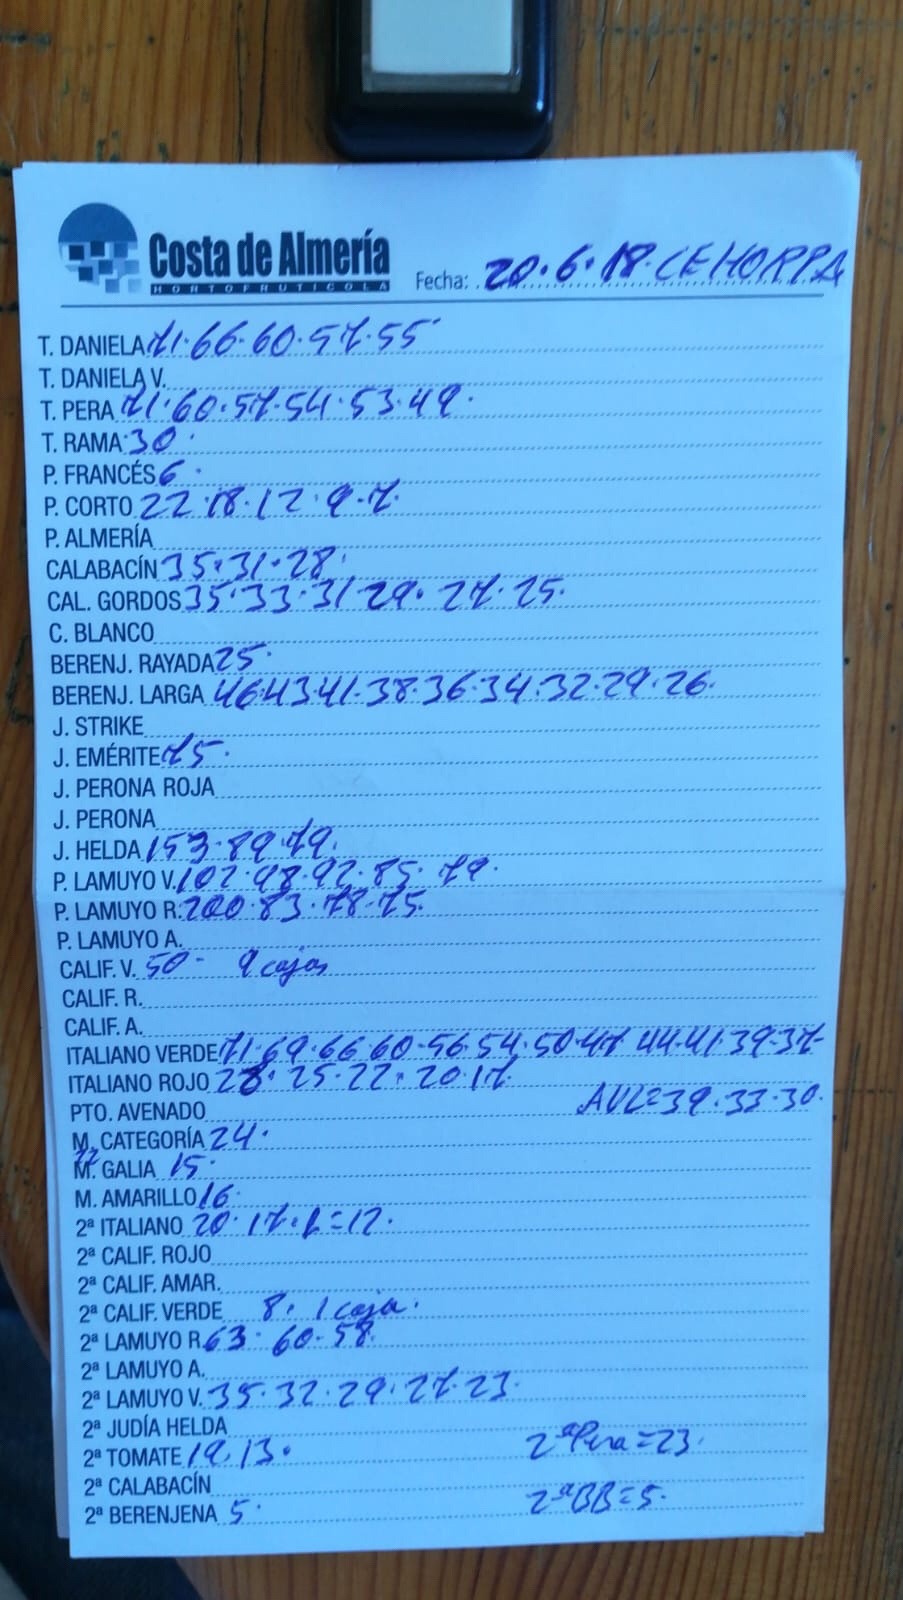 Costa de Almería
HORTOFRUTICOLA
Fecha: 20.6.18. CEHORPA
T. DANIELA 71.66.60.57.55
T. DANIELA V.
T. PERA 71.60.57.54.53.49.
T. RAMA 30.
P. FRANCÉS 6.
P. CORTO 22.18.12.9.7.
P. ALMERÍA
CALABACÍN 35.31.28.
CAL. GORDOS 35.33.31.29.27.25.
C. BLANCO
BERENJ. RAYADA 25.
BERENJ. LARGA 46.43.41.38.36.34.32.29.26.
J. STRIKE
J. EMÉRITE 75.
J. PERONA ROJA
J. PERONA
J. HELDA 153.89.79.
P. LAMUYO V. 102.98.92.85.79.
P. LAMUYO R. 200.83.78.75.
P. LAMUYO A.
CALIF. V. 50- 9 cajas
CALIF. R.
CALIF. A.
ITALIANO VERDE 71.69.66.60.56.54.50.47 44.41.39.37-
ITALIANO ROJO 28.25.22.20.17.
PTO. AVENADO AVE=39.33.30.
M. CATEGORÍA 24.
M. GALIA 15.
M. AMARILLO 16.
2ª ITALIANO 20.17. =12.
2ª CALIF. ROJO
2ª CALIF. AMAR.
2ª CALIF. VERDE 8. 1 caja.
2ª LAMUYO R. 63. 60.58.
2ª LAMUYO A.
2ª LAMUYO V. 35.32.29.27.23.
2ª JUDÍA HELDA
2ª TOMATE 19.13. 2ª Pera=23.
2ª CALABACÍN
2ª BERENJENA 5. 2ª BB=5.